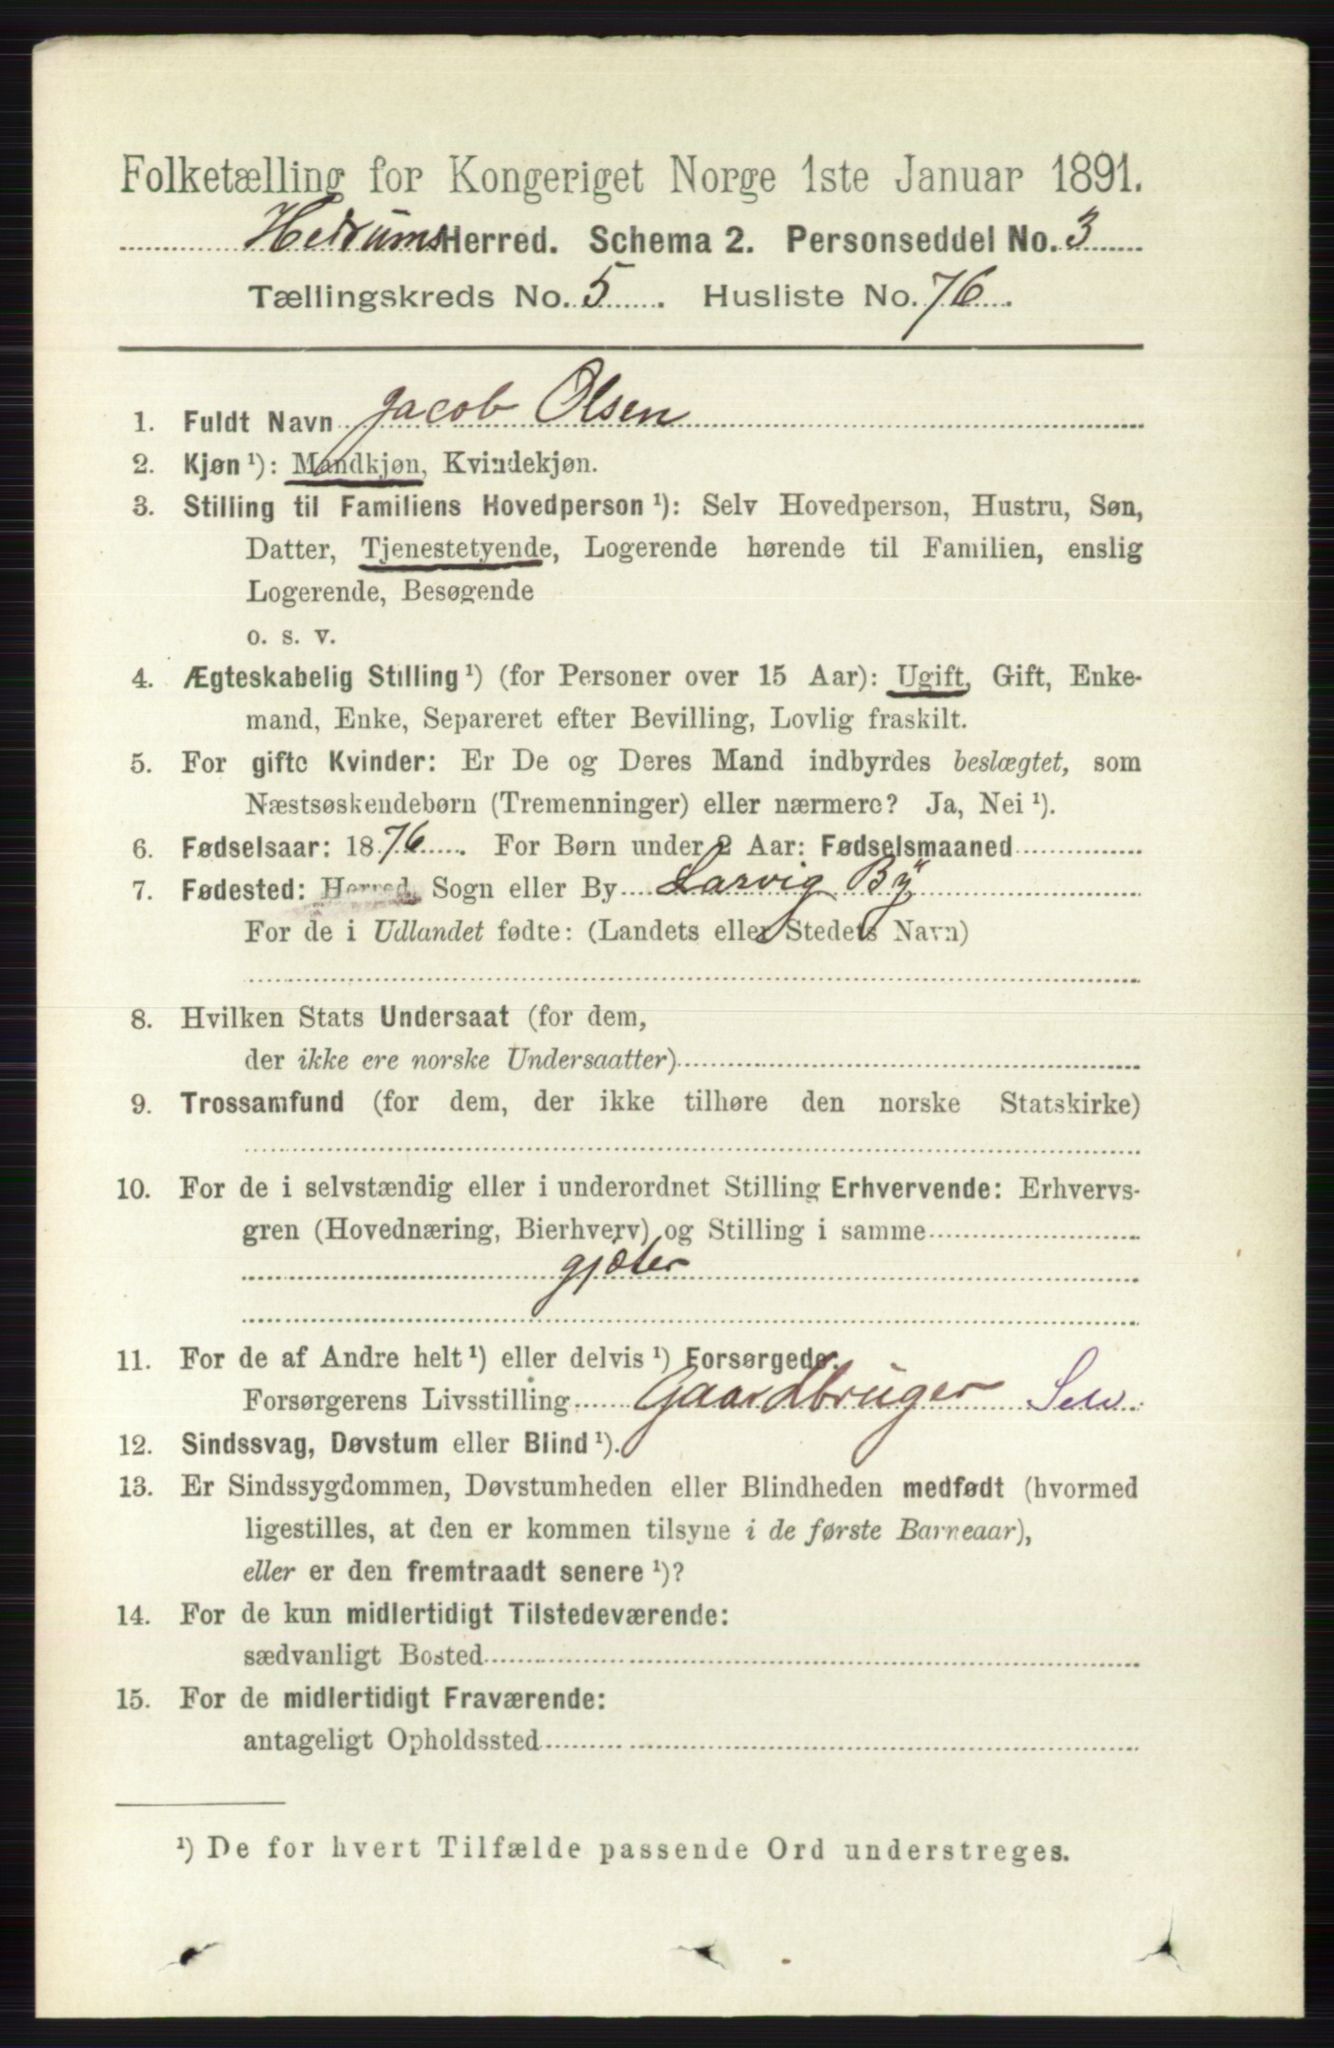 Folketælling for Kongeriget Norge 1ste Januar 1891.
Hedrums Herred. Schema 2. Personseddel No. 3
Tællingskreds No. 5. Husliste No. 76.
1. Fuldt Navn Jacob Olsen
2. Kjøn ¹): Mandkjøn, Kvindekjøn.
3. Stilling til Familiens Hovedperson ¹): Selv Hovedperson, Hustru, Søn,
Datter, Tjenestetyende, Logerende hørende til Familien, enslig
Logerende, Besøgende
o. s. v.
4. Ægteskabelig Stilling ¹) (for Personer over 15 Aar): Ugift, Gift, Enke-
mand, Enke, Separeret efter Bevilling, Lovlig fraskilt.
5. For gifte Kvinder: Er De og Deres Mand indbyrdes beslægtet, som
Næstsøskendebørn (Tremenninger) eller nærmere? Ja, Nei ¹).
6. Fødselsaar: 1876. For Børn under 2 Aar: Fødselsmaaned
7. Fødested: Herred, Sogn eller By Larvig By
For de i Udlandet fødte: (Landets eller Stedets Navn)
8. Hvilken Stats Undersaat (for dem,
der ikke ere norske Undersaatter)
9. Trossamfund (for dem, der ikke tilhøre den norske Statskirke)
10. For de i selvstændig eller i underordnet Stilling Erhvervende: Erhvervs-
gren (Hovednæring, Bierhverv) og Stilling i samme
gjæter
11. For de af Andre helt ¹) eller delvis ¹) Forsørgede:
Forsørgerens Livsstilling Gaardbruger Selv.
12. Sindssvag, Døvstum eller Blind ¹).
13. Er Sindssygdommen, Døvstumheden eller Blindheden medfødt (hvormed
ligestilles, at den er kommen tilsyne i de første Barneaar),
eller er den fremtraadt senere ¹)?
14. For de kun midlertidigt Tilstedeværende:
sædvanligt Bosted
15. For de midlertidigt Fraværende:
antageligt Opholdssted
¹) De for hvert Tilfælde passende Ord understreges.